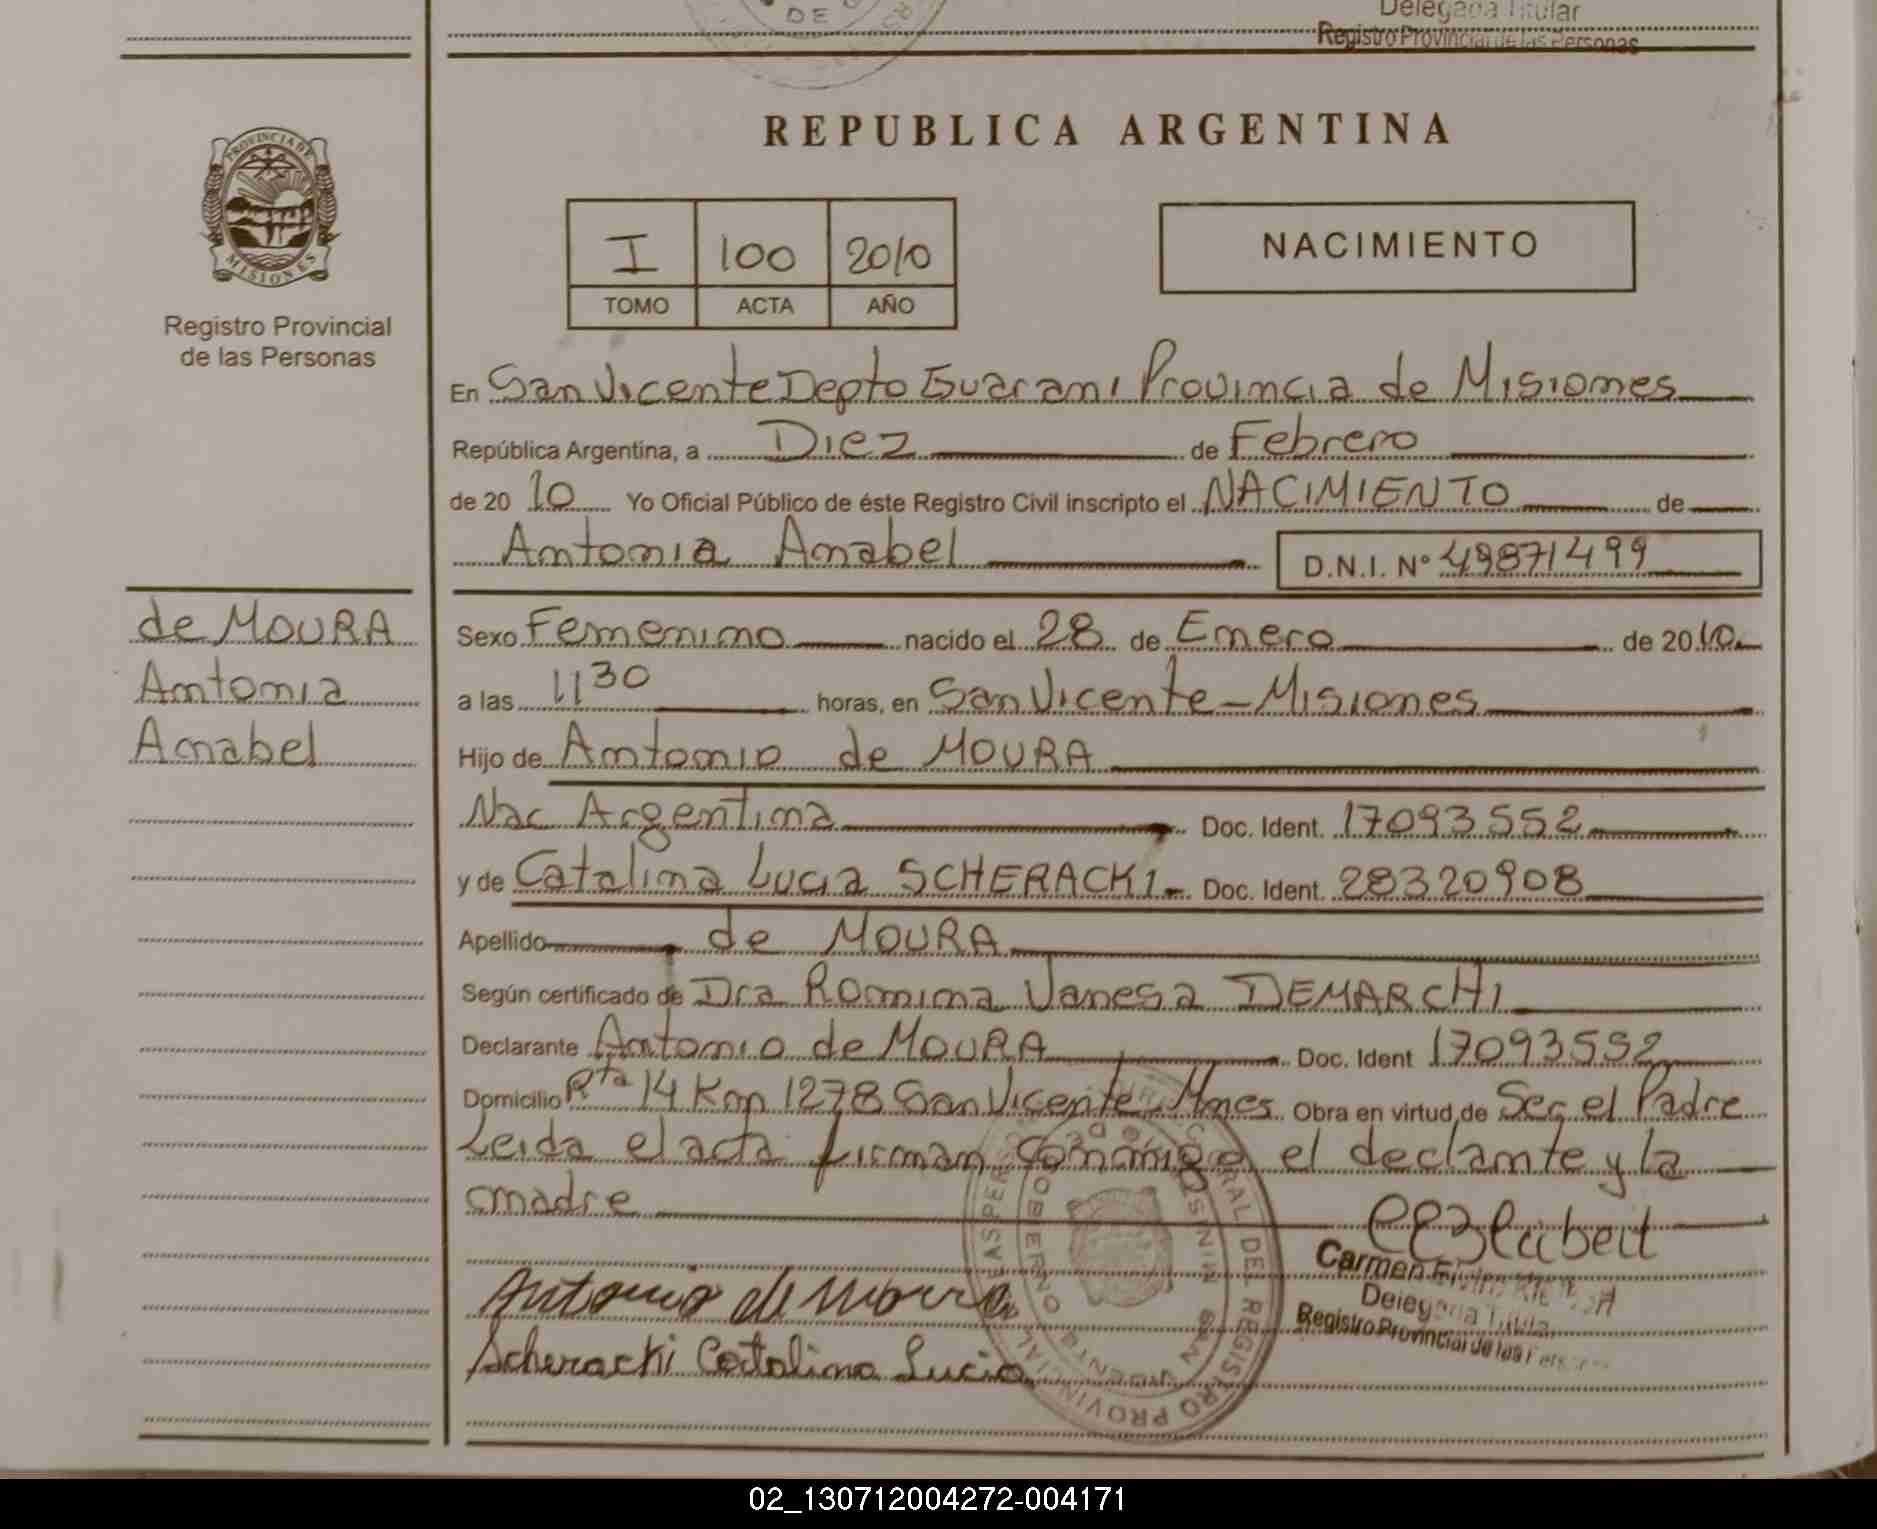 DE
Delegada Titular
Registro Provincial de las Personas
PROVINCIA DE
MISIONES
Registro Provincial
de las Personas
REPUBLICA ARGENTINA
I 100 2010
TOMO ACTA AÑO
NACIMIENTO
En San Vicente Depto Guarani Provincia de Misiones
República Argentina, a Diez de Febrero
de 20 10 Yo Oficial Público de éste Registro Civil inscripto el NACIMIENTO de
Antonia Anabel D.N.I. Nº 49871499
de MOURA
Antonia
Anabel
Sexo Femenino nacido el 28 de Enero de 2010
a las 11 30 horas, en San Vicente - Misiones
Hijo de Antonio de MOURA
Nac Argentina Doc. Ident. 17093552
y de Catalina Lucia SCHERACKI Doc. Ident. 28320908
Apellido de MOURA
Según certificado de Dra Romina Vanesa DEMARCHI
Declarante Antonio de MOURA Doc. Ident 17093552
Domicilio Rta 14 Km 1278 San Vicente Mnes Obra en virtud de Ser el Padre
Leida el acta firman conmigo el declante y la
madre
Carmen
Delegada Titular
Registro Provincial de las Personas
Antonio de Moura
Scheracki Catalina Lucia
REGISTRO PROVINCIAL DE LAS PERSONAS
SAN VICENTE
02_130712004272-004171